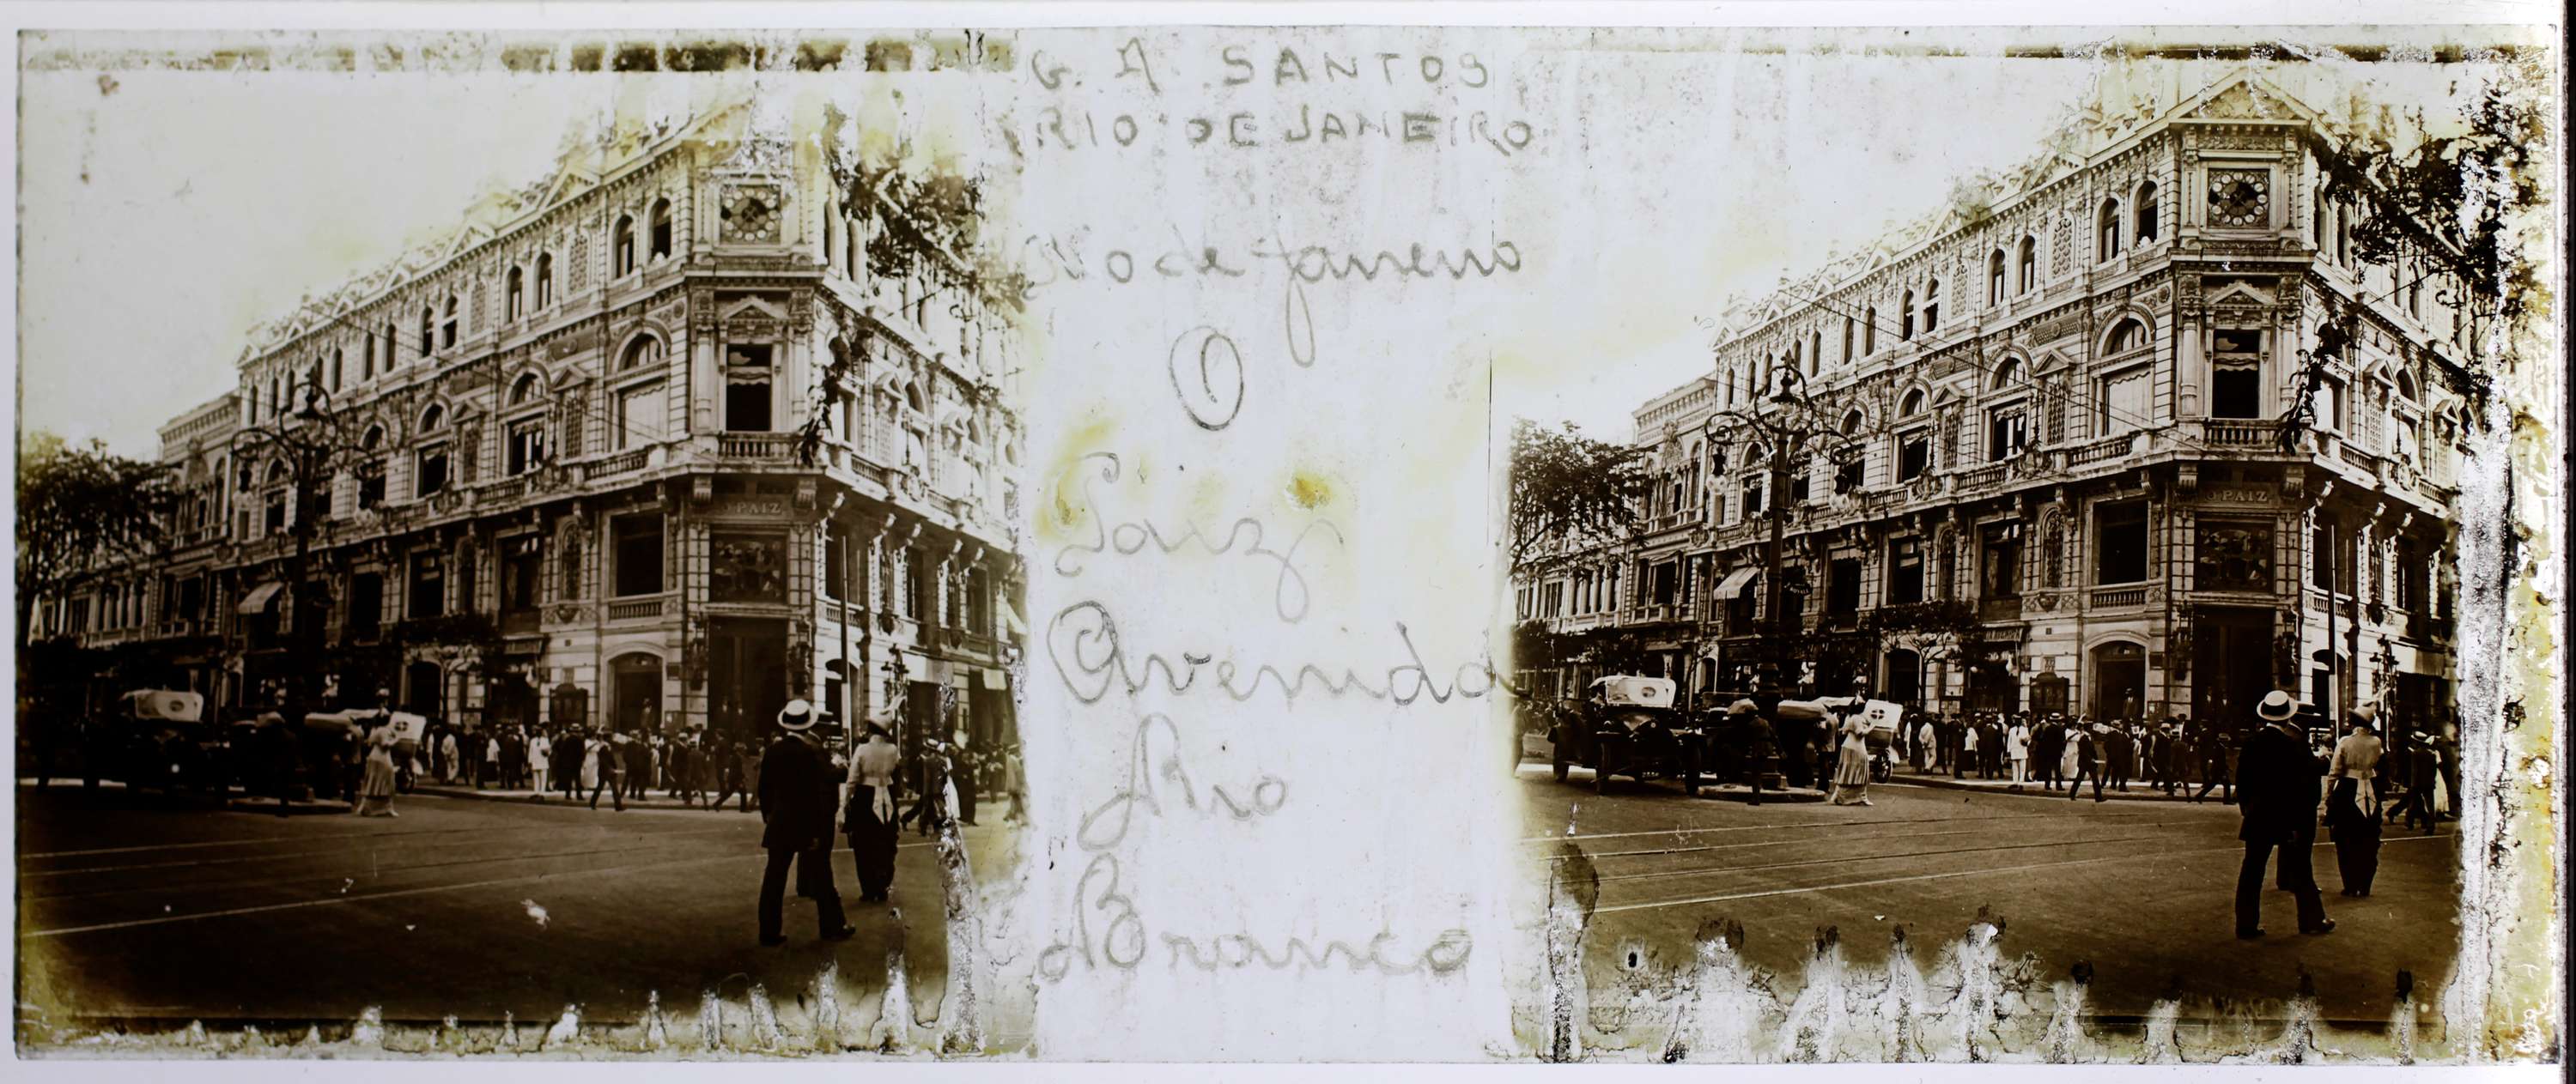 G. A. SANTOS
RIO DE JANEIRO
Rio de Janeiro
O
Paiz
Avenida
Rio
Branco
O PAIZ
O PAIZ